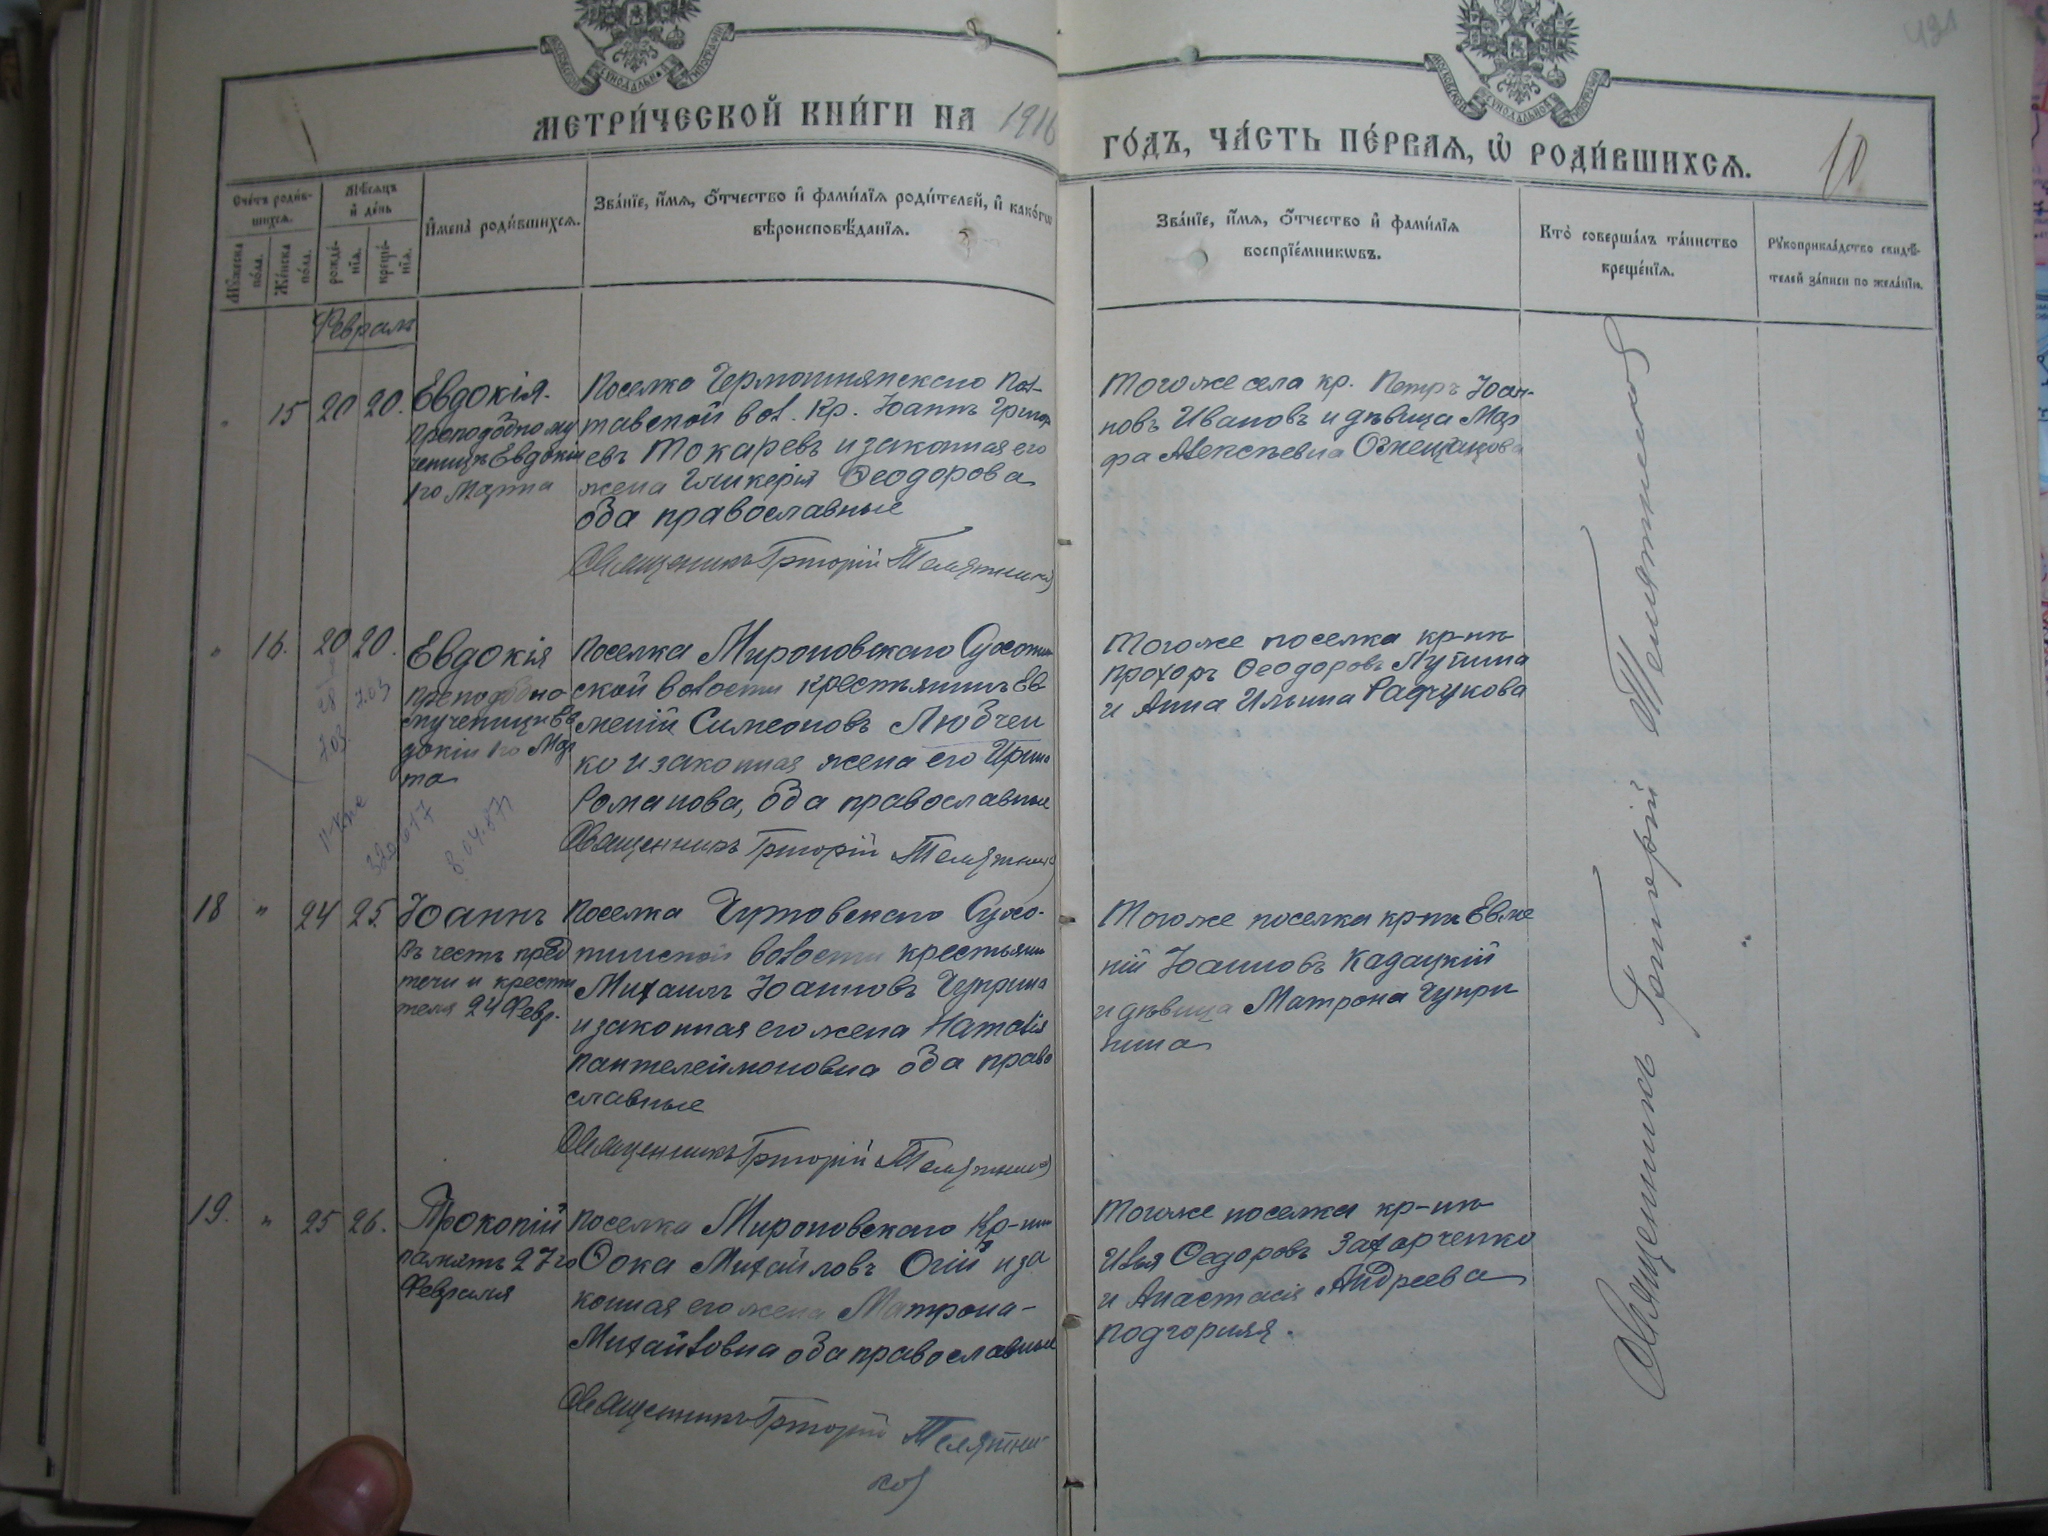 МЕТРИ́ЧЕСКОЙ КНИ́ГИ НА 1916
ГО́ДЪ, ЧА́СТЬ ПЕ́РВАЯ, Ѡ РОДИ́ВШИХСЯ.
10
421
Сче́тъ роди́в-
шихся.
Му́жеска
по́ла.
Же́нска
по́ла.
Мѣ́сяцъ
и де́нь
рожде́-
нїя.
креще́-
нїя.
И҆мена̀ роди́вшихся.
Зва́нїе, и҆́мя, ѻ҆́тчество и҆ фами́лїя роди́телей, и҆ како́гѡ
вѣроисповѣ́данїя.
Зва́нїе, и҆́мя, ѻ҆́тчество и҆ фами́лїя
воспрїе́мникѡвъ.
Кто̀ соверша́лъ та́инство
креще́нїя.
Рукоприкла́дство свидѣ́-
телей за́писи по жела́нїю.
Февраль
" 15 20 20.
Евдокія.
преподобно му
ченицы Евдокіи
1го Марта
Поселка Чермошнянскаго Пол-
тавской вол. Кр. Іоаннъ Григор
евъ Токаревъ и законная его
жена Гликерія Ѳеодорова
оба православные
Священникъ Григорій Телятников
Тогоже села кр. Петръ Іоан-
новъ Ивановъ и дѣвица Мар
фа Алексѣевна
" 16. 20 20.
Евдокія
преподобно
мученицы Ев
докіи 1го Мар
та
Поселка Мироновскаго Сухотин
ской волости крестьянинъ Ев
меній Симеоновъ Любчен
ко и законная жена его Ирина
Романова, оба православные
Священникъ Григорій Телятников
Тогоже поселка кр-нъ
Прохоръ Ѳеодоровъ
и Анна Ильина
8.04.57
18 " 24 25.
Іоаннъ
въ честь пред
течи и крести
теля 24 Февр.
Поселка Чутовскаго Сухо-
тинской волости крестьянин
Михаилъ Іоанновъ Чуприна
и законная его жена Наталія
Пантелеймоновна оба право
славные
Священникъ Григорій Телятников
Тогоже поселка кр-нъ Евме
ній Іоанновъ Кадацкій
и дѣвица Матрона Чупри
нина
19. " 25 26.
Прокопій
память 27го
Февраля
Поселка Мироновскаго Кр-нин
Ѳока Михайловъ Огій и за
конная его жена Матрона-
Михайловна оба православные
Священникъ Григорій Телятни-
ков
Тогоже поселка кр-нъ
Илья Ѳедоровъ Захарченко
и Анастасія Андреева
Подгорняя.
Священникъ Григорій Телятников